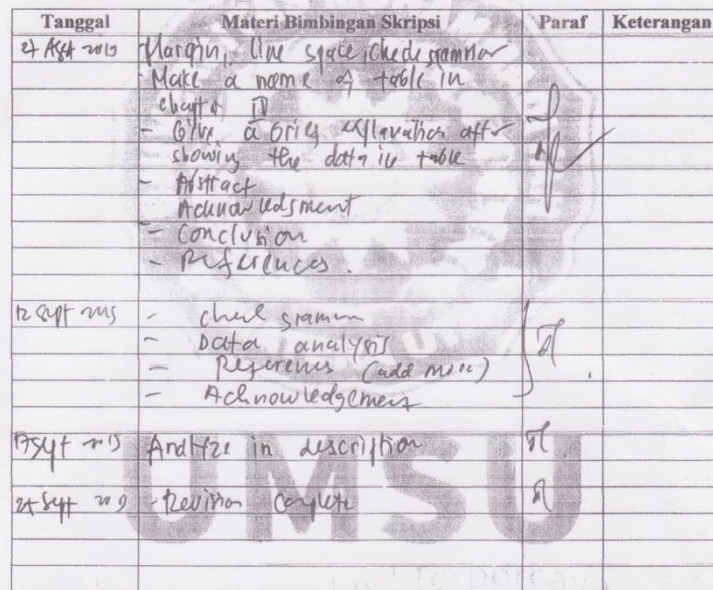 Tanggal Materi Bimbingan Skripsi Paraf Keterangan
27 Agst 2019 Margin, line space, check grammar
- Make a name of table in
chapter IV
- Give a brief explanation after
showing the data in table
- Abstract
Acknowledgment
- Conclusion
- References.
12 Sept 2019 - check grammar
- Data analysis
- References (add more)
- Acknowledgement
Sept 2019 Analyze in description
Sept 2019 - Revision Complete
UMSU